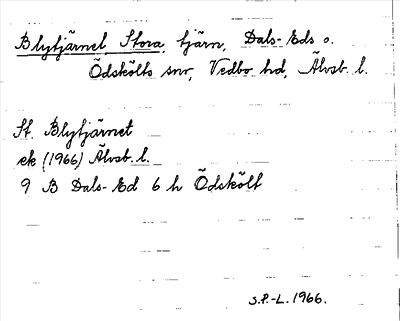 Blytjärnet, Stora, tjärn, Dals-Eds o.
Ödskölts snr, Vedbo hd, Älvsb. l.
St. Blytjärnet
ek (1966) Älvsb. l.
9 B Dals-Ed 6 h Ödskölt
S.P.-L. 1966.